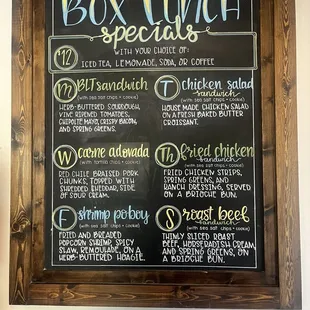 BOX LUNCH
specials
$12
WITH YOUR CHOICE OF:
ICED TEA, LEMONADE, SODA, OR COFFEE
M BLT sandwich
(with sea salt chips + cookie)
HERB-BUTTERED SOURDOUGH,
VINE RIPENED TOMATOES,
CHIPOTLE MAYO, CRISPY BACON,
AND SPRING GREENS.
T chicken salad
sandwich
(with sea salt chips + cookie)
HOUSE MADE CHICKEN SALAD
ON A FRESH BAKED BUTTER
CROISSANT.
W carne adovada
(with tortilla chips + cookie)
RED CHILE BRAISED PORK
CHUNKS, TOPPED WITH
SHREDDED CHEDDAR, SIDE
OF SOUR CREAM.
Th fried chicken
sandwich
(with sea salt chips + cookie)
FRIED CHICKEN STRIPS,
SPRING GREENS, AND
RANCH DRESSING, SERVED
ON A BRIOCHE BUN.
F shrimp poboy
(with sea salt chips + cookie)
FRIED AND BREADED
POPCORN SHRIMP, SPICY
SLAW, REMOULADE, ON A
HERB-BUTTERED HOAGIE.
S roast beef
sandwich
(with sea salt chips + cookie)
THINLY SLICED ROAST
BEEF, HORSERADISH CREAM,
AND SPRING GREENS, ON
A BRIOCHE BUN.